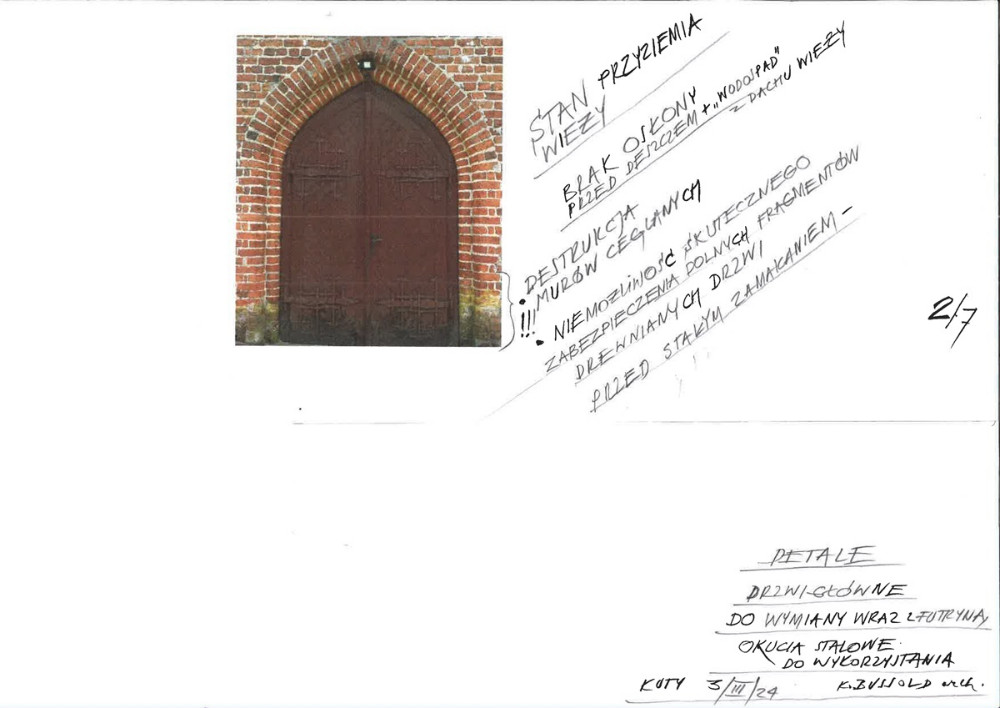 STAN PRZYZIEMIA
WIEŻY
BRAK OSŁONY
PRZED DESZCZEM + „WODOSPAD"
Z DACHU WIEŻY
DESTRUKCJA
MURÓW CEGLANYCH
!!!
• NIEMOŻLIWOŚĆ SKUTECZNEGO
ZABEZPIECZENIA DOLNYCH FRAGMENTÓW
DREWNIANYCH DRZWI
PRZED STAŁYM ZAMAKANIEM –
2/7
DETALE
DRZWI GŁÓWNE
DO WYMIANY WRAZ Z FUTRYNĄ
OKUCIA STALOWE
DO WYKORZYSTANIA
KUTY 3/III/24 K. BUSSOLD arch.